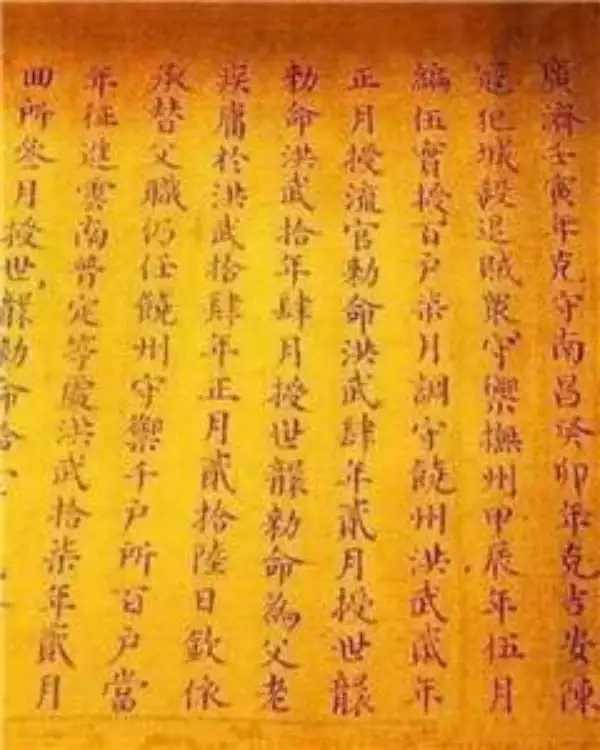 廣濟壬寅年克守南昌癸卯年克吉安陳
寇犯城殺退賊衆守禦撫州甲辰年伍月
編伍實授百戶柒月調守饒州洪武貳年
正月授流官勅命洪武肆年貳月授世襲
勅命洪武拾年肆月授世襲勅命為父老
疾庸於洪武拾肆年正月貳拾陸日欽依
承替父職仍任饒州守禦千戶所百戶當
年征進雲南普定等處洪武拾柒年貳月
回所叁月授世襲勅命拾